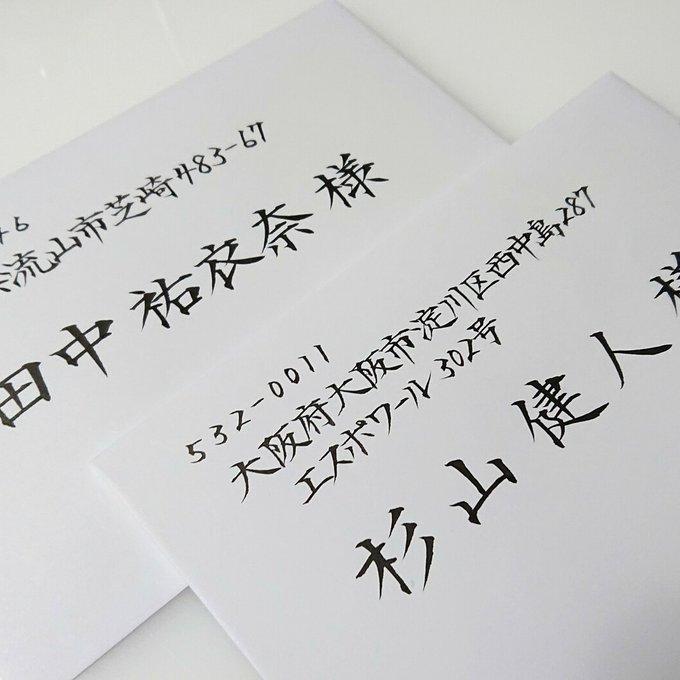 46
流山市芝崎483-67
田中 祐衣奈 様
532-0011
大阪府大阪市淀川区西中島287
エスポワール302号
杉山 健人 様